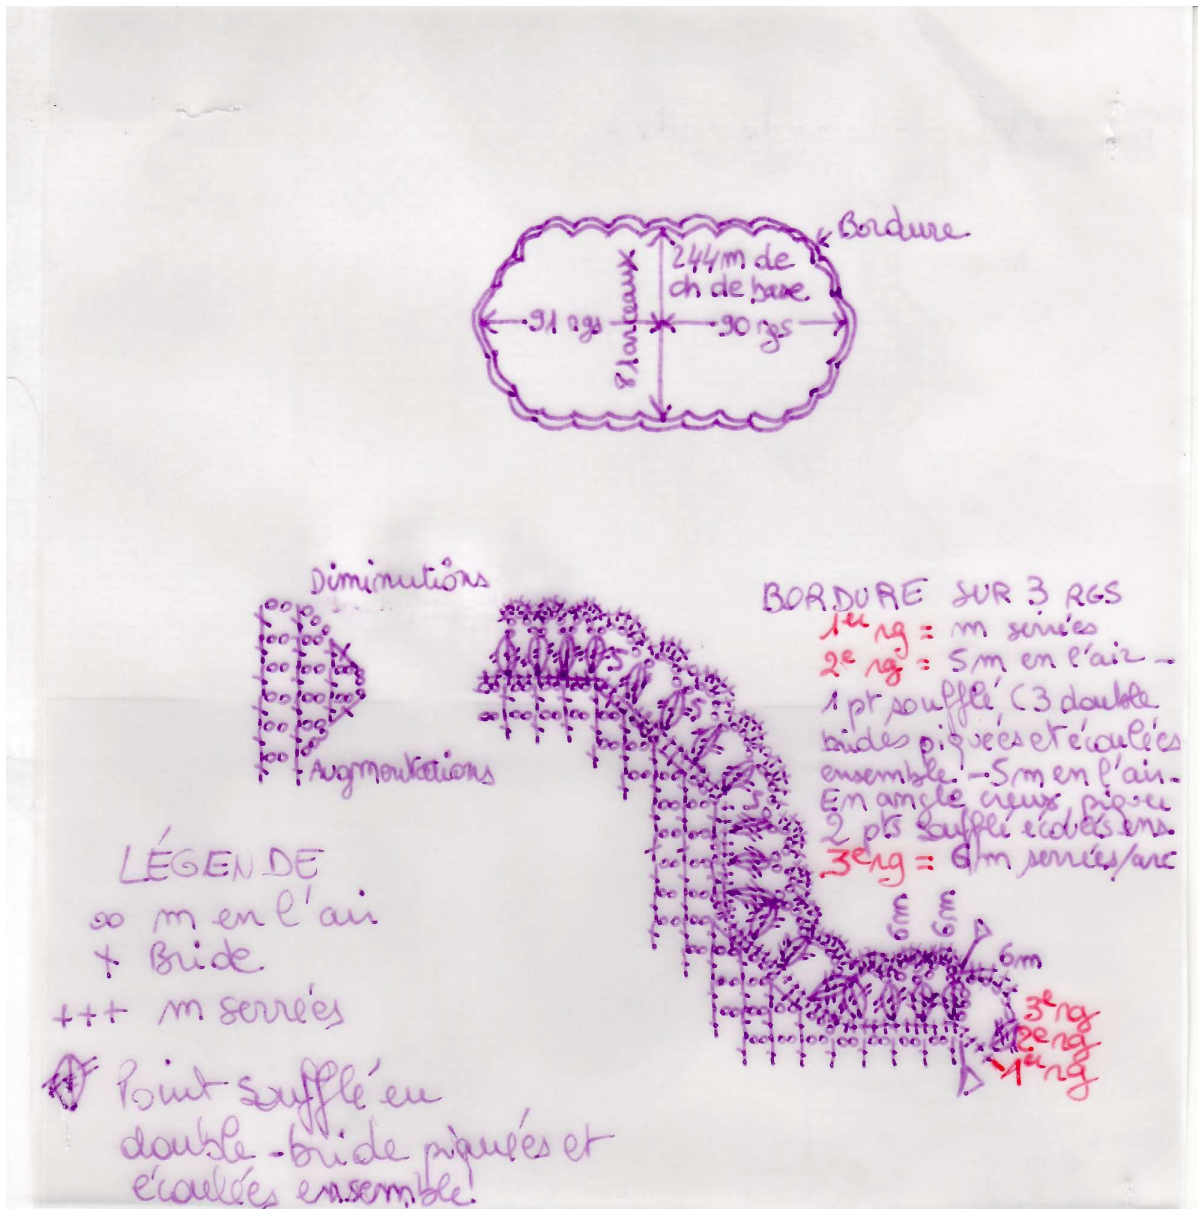 Bordure
244m de
ch de base
81 arceaux
91 rgs
90 rgs
Diminutiôns
Augmentations
BORDURE SUR 3 RGS
1er rg = m serrées
2e rg = 5m en l'air -
1 pt soufflé (3 double
brides piquées et écoulées
ensemble - 5m en l'air -
En angle creux piquer
2 pts soufflé écoulés ens.
3e rg = 6 m serrées/arc
5
5
5
6m
6m
6m
3e rg
2e rg
1er rg
LÉGENDE
oo m en l'air
+ Bride
+++ m serrées
Point soufflé en
double-bride piquées et
écoulées ensemble!